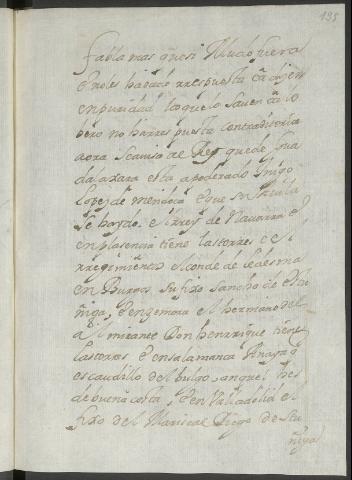 135
fabla mas q̃ nesi Mudo fuera
e noles ha dado rrespuesta
en puridad lo que lo saven
pero no há rrespuesta contraditoria
aora se amiso al Rey que de Gua
dalaxara esta apoderado Iñigo
Lopez de mendoca e que en Avila
se ha ydo el rrey de Navarra e
en plasencia tiene las torres e el
rregimiento el conde de ledesma
en Burgos su fixo sancho de estu
ñiga, e en zemora el hermano del
Almirante Don henrrique tiene
las torres e en salamanca Anaya q̃
es caudillo del bulgo, anquel hes
de buena casta, e en Valladolid el
fixo del Mariscal Diego de stu
ñiga